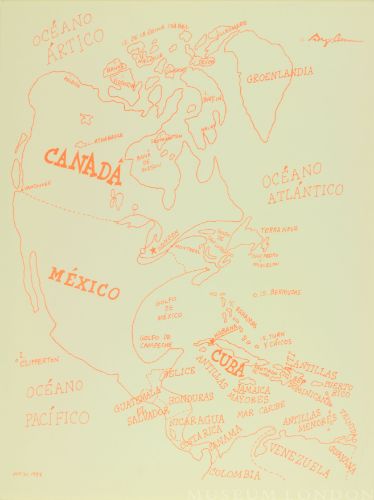 OCÉANO
ÁRTICO
I. DE LA REINA ISABEL
GROENLANDIA
BAFFIN
L. ATHABASCA
SOUTHAMPTON
CANADÁ
BAHÍA
DE
HUDSON
VANCOUVER
OCÉANO
ATLÁNTICO
TERRANOVA
SAN PEDRO
Y
MIQUELON
MONTREAL
MÉXICO
IS. BERMUDAS
GOLFO
DE
MÉXICO
BAHAMAS
HABANA
GOLFO DE
CAMPECHE
I. TURK
Y CAICOS
CUBA
I.
CLIPPERTON
BELICE
ANTILLAS
MAYORES
JAMAICA
HAITÍ
DOMINICANA
ANTILLAS
PUERTO
RICO
OCÉANO
PACÍFICO
GUATEMALA
SALVADOR
HONDURAS
NICARAGUA
COSTA RICA
PANAMA
MAR CARIBE
ANTILLAS
MENORES
TRINIDAD
GUAYANA
VENEZUELA
COLOMBIA
MUSEUM OF LONDON